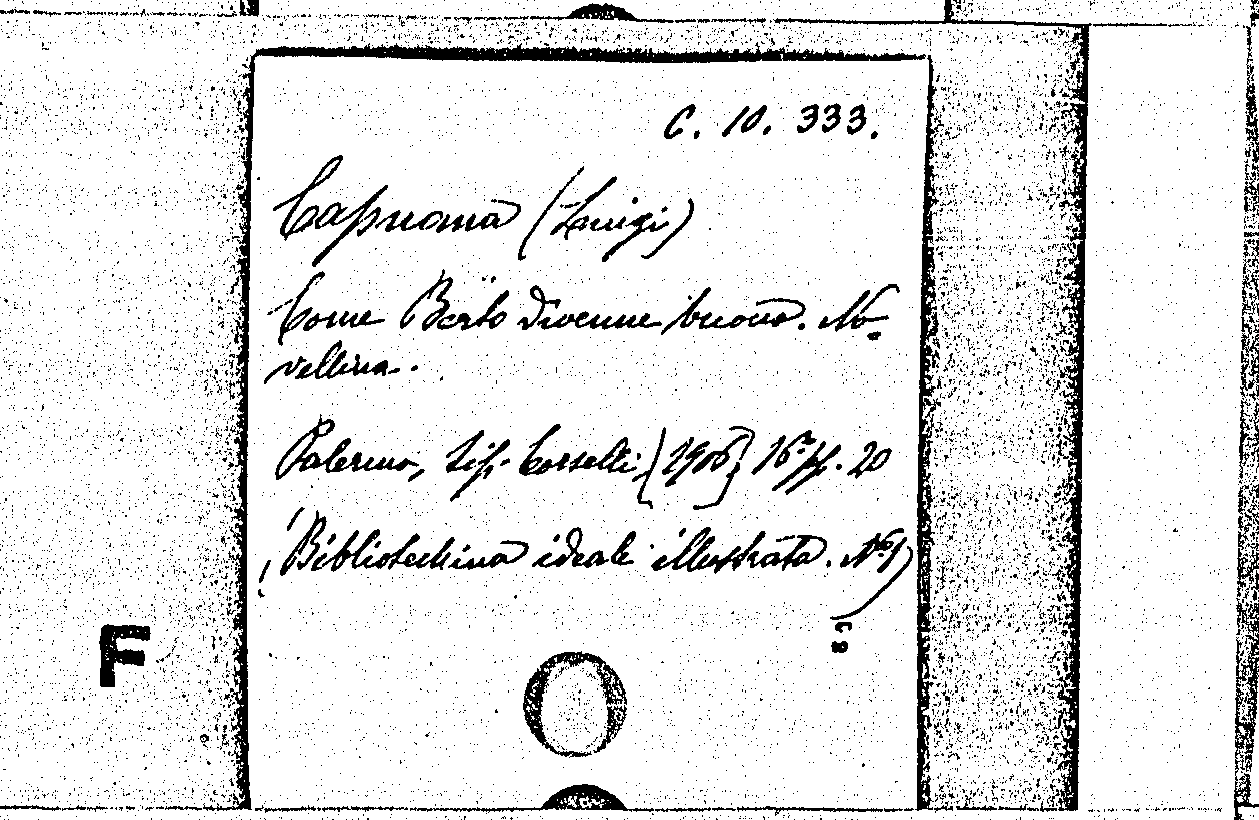 C. 10. 333.
Capuana (Luigi)
Come Berto divenne buono. No-
vellina.
Palermo, tip. Corselli, [1906] 16° pp. 20
(Bibliotechina ideale illustrata. N° 1)
F